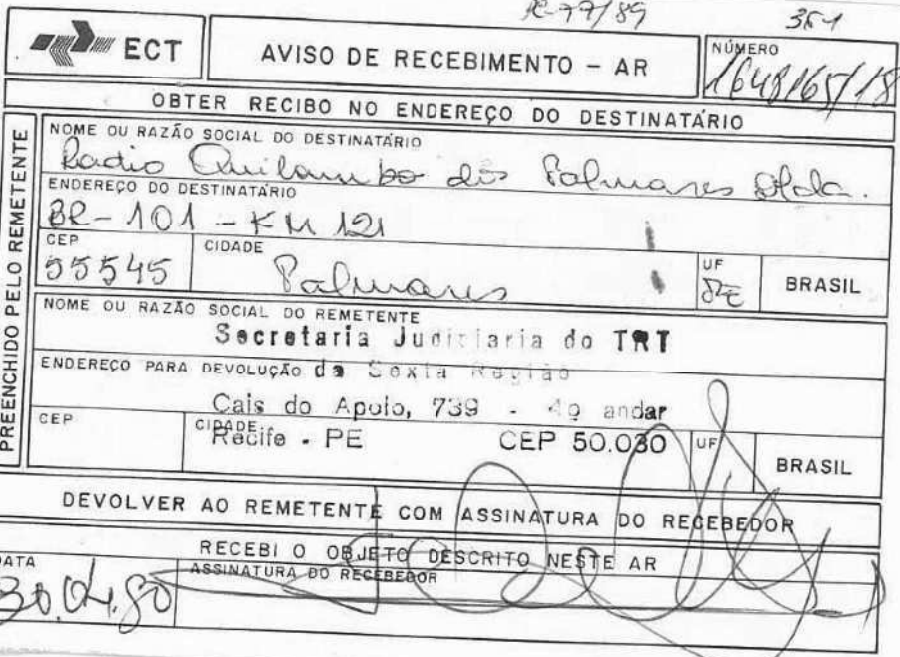 77/89
351
ECT
AVISO DE RECEBIMENTO - AR
NÚMERO
1648165/18
OBTER RECIBO NO ENDEREÇO DO DESTINATÁRIO
PREENCHIDO PELO REMETENTE
NOME OU RAZÃO SOCIAL DO DESTINATÁRIO
Radio Quilombo dos Palmares Ltda.
ENDEREÇO DO DESTINATÁRIO
BR-101 - KM 121
CEP
55545
CIDADE
Palmares
UF
PE
BRASIL
NOME OU RAZÃO SOCIAL DO REMETENTE
Secretaria Judiciaria do TRT
ENDEREÇO PARA DEVOLUÇÃO
da Sexta Região
Cais do Apolo, 739 - 4º andar
CEP
CIDADE
Recife - PE CEP 50.030
UF
BRASIL
DEVOLVER AO REMETENTE COM ASSINATURA DO RECEBEDOR
RECEBI O OBJETO DESCRITO NESTE AR
DATA
30.04.
ASSINATURA DO RECEBEDOR